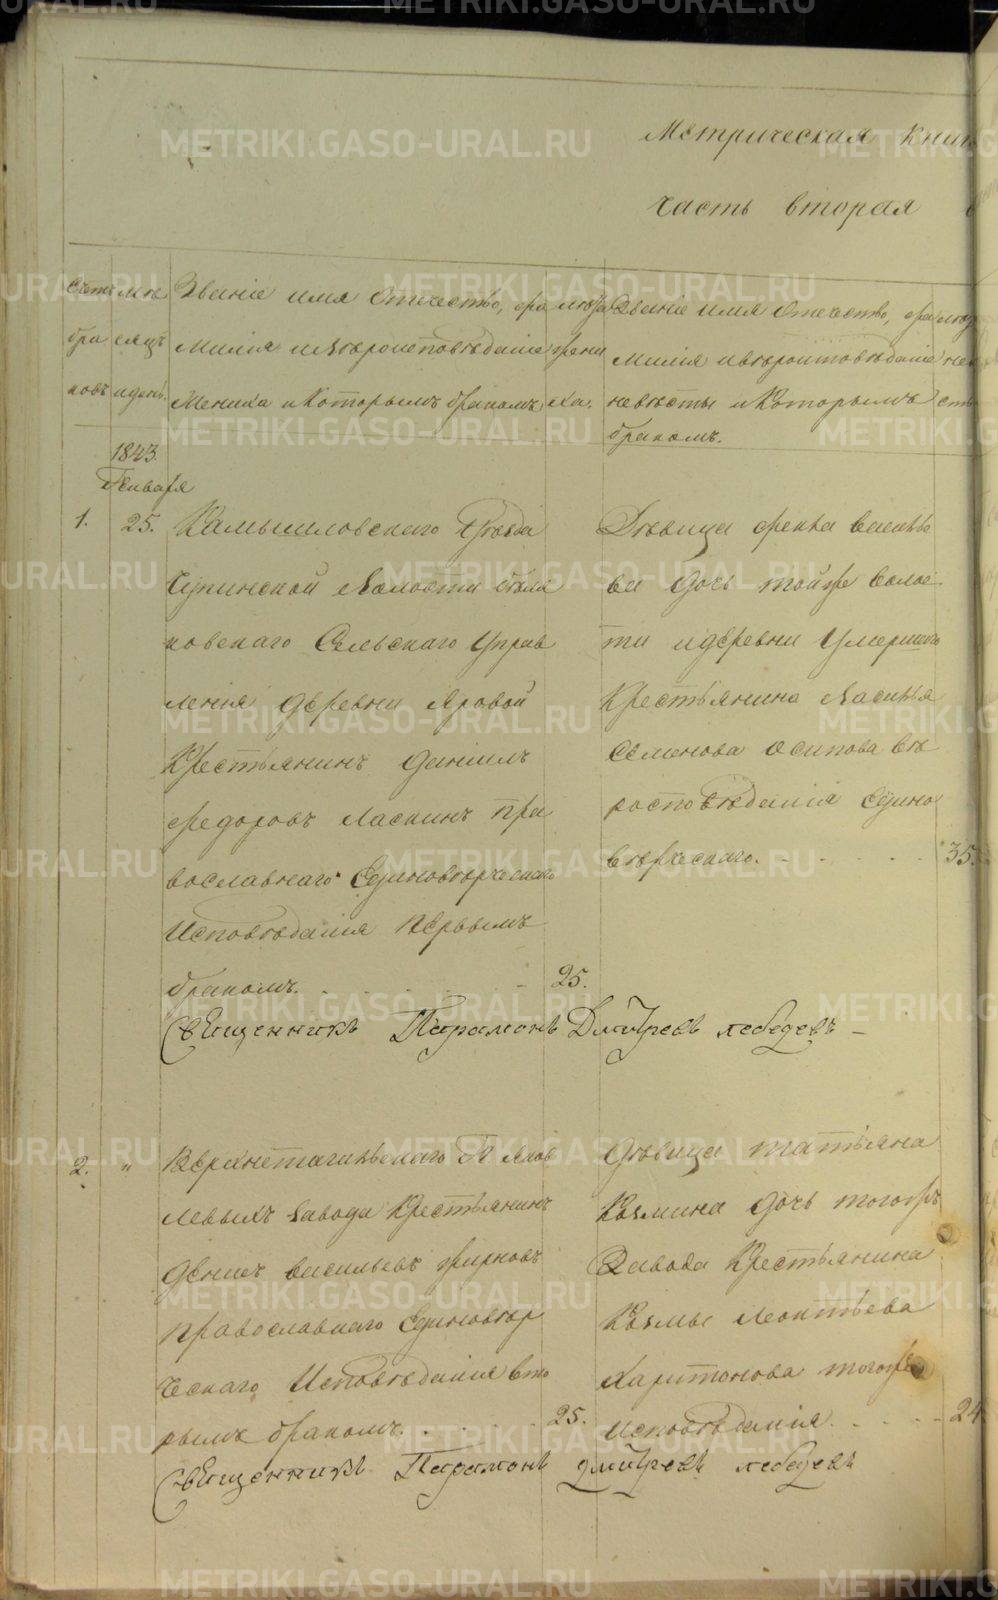 Метрическая Книг
часть вторая
Счетъ бра ковъ
Мѣ сяцъ и день.
Званіе имя Отечество, фа
милія и Вѣроисповѣданіе
Жениха и Которымъ бракомъ
лѣта жени ха.
Званіе имя Отечество, фа
милія и вѣроисповѣданіе
невѣсты и Которымъ
бракомъ.
лѣт не сты
1843.
Генваря
1. 25.
Камышловскаго Уѣзда
Чупинской Волости
ковскаго Сельскаго Управ
ленія деревни Яровой
Крестьянинъ Даніилъ
Федоровъ Ласкинъ пра
вославнаго Единовѣрческаго
Исповѣданія первымъ
бракомъ. 25.
Дѣвица Фекла Василье
ва дочь той же волос
ти и деревни Умершаго
Крестьянина Василья
Семенова Осипова вѣ
роисповѣданія Едино
вѣрческаго. 35.
Священникъ Парамонъ Дмитревъ лебедевъ
2. "
Верхнетагильскаго Г. Яков
левыхъ Завода Крестьянинъ
Денисъ васильевъ жирновъ
православнаго Единовѣр
ческаго Исповѣданія вто
рымъ бракомъ. 25.
Дѣвица татьяна
Козмина дочь тогожъ
Завода Крестьянина
Козмы Леонтьева
Харитонова тогоже
исповѣданія. 24
Священникъ Парамонъ дмитревъ лебедевъ
METRIKI.GASO-URAL.RU